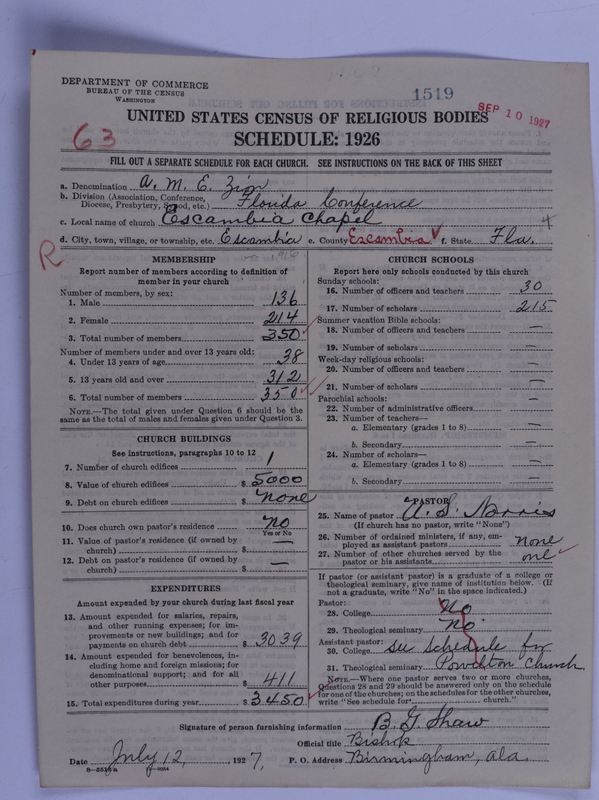 DEPARTMENT OF COMMERCE
BUREAU OF THE CENSUS
WASHINGTON
1519
SEP 10 1927
UNITED STATES CENSUS OF RELIGIOUS BODIES
63
SCHEDULE: 1926
FILL OUT A SEPARATE SCHEDULE FOR EACH CHURCH. SEE INSTRUCTIONS ON THE BACK OF THIS SHEET
a. Denomination A. M. E. Zion
b. Division (Association, Conference, Diocese, Presbytery, Synod, etc.) Florida Conference
c. Local name of church Escambia Chapel
d. City, town, village, or township, etc. Escambia e. County Escambia f. State Fla.
R
MEMBERSHIP
Report number of members according to definition of member in your church
Number of members, by sex:
1. Male 136
2. Female 214
3. Total number of members 350
Number of members under and over 13 years old:
4. Under 13 years of age 38
5. 13 years old and over 312
6. Total number of members 350
NOTE.—The total given under Question 6 should be the same as the total of males and females given under Question 3.
CHURCH BUILDINGS
See instructions, paragraphs 10 to 12
7. Number of church edifices 1
8. Value of church edifices $ 5000
9. Debt on church edifices $ none
10. Does church own pastor's residence no
Yes or No
11. Value of pastor's residence (if owned by church) $ —
12. Debt on pastor's residence (if owned by church) $ —
EXPENDITURES
Amount expended by your church during last fiscal year
13. For amount expended for salaries, repairs, and other running expenses; for improvements or new buildings; and for payments on church debt $ 3039
14. Amount expended for benevolences, including home and foreign missions; for denominational support; and for all other purposes $ 411
15. Total expenditures during year $ 3450
CHURCH SCHOOLS
Report here only schools conducted by this church
Sunday schools:
16. Number of officers and teachers 30
17. Number of scholars 215
Summer vacation Bible schools:
18. Number of officers and teachers —
19. Number of scholars —
Week-day religious schools:
20. Number of officers and teachers —
21. Number of scholars —
Parochial schools:
22. Number of administrative officers —
23. Number of teachers—
a. Elementary (grades 1 to 8) —
b. Secondary —
24. Number of scholars—
a. Elementary (grades 1 to 8) —
b. Secondary —
PASTOR
25. Name of pastor A. S. Norris
(If church has no pastor, write "None")
26. Number of ordained ministers, if any, employed as assistant pastors none
27. Number of other churches served by the pastor or his assistants one
If pastor (or assistant pastor) is a graduate of a college or theological seminary, give name of institution below. (If not a graduate, write "No" in the space indicated.)
Pastor:
28. College No
29. Theological seminary No
Assistant pastor:
30. College see schedule for
31. Theological seminary Powelton Church
NOTE.—Where one pastor serves two or more churches, Questions 28 and 29 should be answered only on the schedule for one of the churches; on the schedules for the other churches, write "See schedule for church."
Signature of person furnishing information B. G. Shaw
Official title Bishop
Date July 12, 1927, P. O. Address Birmingham, Ala.